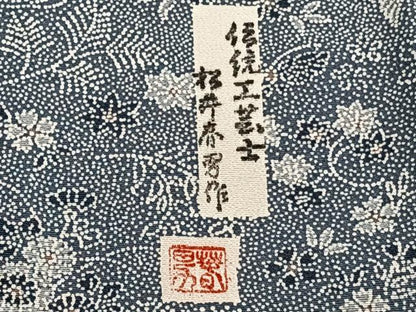 伝統工芸士
松井春男作